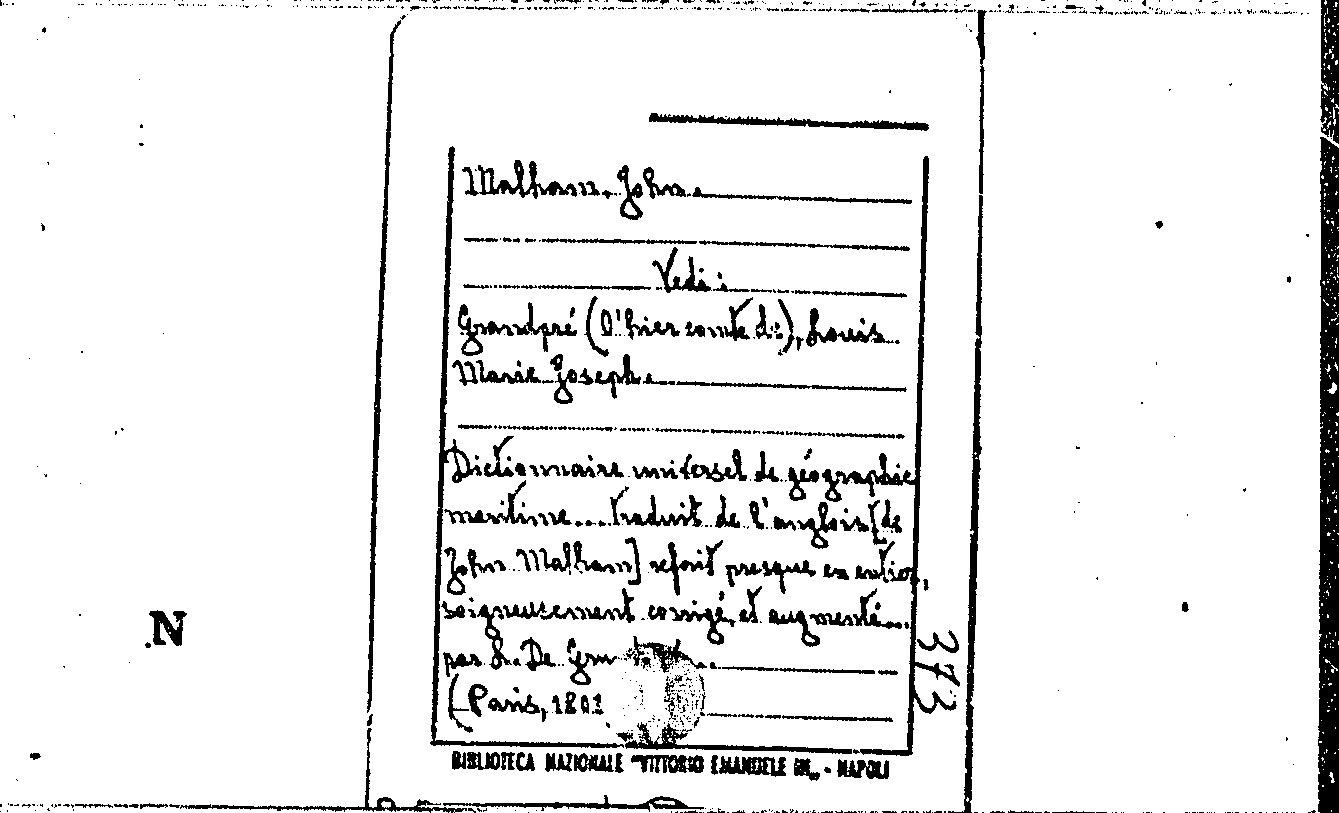 Malham, John.
Vedi:
Grandpré (O'hier comte de), Louis
Marie Joseph.
Dictionnaire universel de géographie
maritime... traduit de l'anglois [de
John Malham] refait presque en entier,
soigneusement corrigé, et augmenté...
par L. De
(Paris,
373
N
BIBLIOTECA NAZIONALE "VITTORIO EMANUELE III„ - NAPOLI